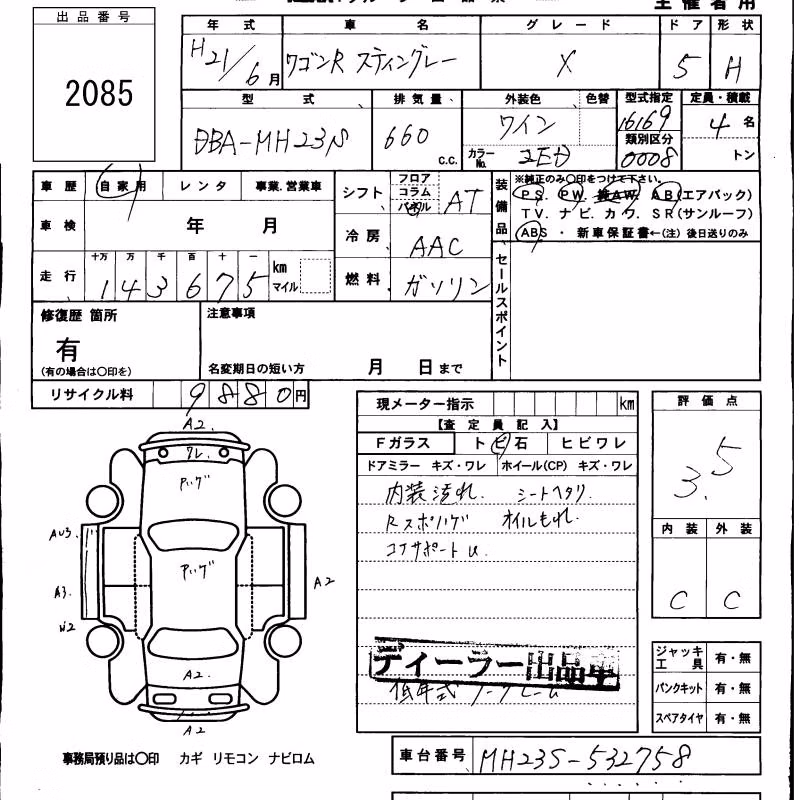 主催者用
出品番号
2085
年式 車名 グレード ドア 形状
H21/6月 ワゴンR スティングレー X 5 H
型式 排気量 外装色 色替 型式指定 定員・積載
DBA-MH23S 660 c.c. ワイン 16169 4名
カラーNo. ZED 類別区分 0008 トン
車歴 自家用 レンタ 事業.営業車
シフト フロア コラム パネル AT
装備品 ※純正のみ〇印をつけて下さい。
PS. PW. AW. AB(エアバック)
TV. ナビ. カワ. SR(サンルーフ)
ABS ・ 新車保証書←(注) 後日送りのみ
車検 年 月
冷房 AAC
走行 十万 万 千 百 十 一 143675 km マイル
燃料 ガソリン
セールスポイント
修復歴 箇所 注意事項
有
(有の場合は〇印を) 名変期日の短い方 月 日まで
リサイクル料 9880円
現メーター指示 km
評価点
3.5
【査定員記入】
Fガラス トビ石 ヒビワレ
ドアミラー キズ・ワレ ホイール(CP) キズ・ワレ
内装汚れ. シートヘタリ.
Rスポイルゲ オイルもれ.
コアサポートU.
内装 外装
C C
A2.
ワレ.
Pハゲ
AU3.
Pハゲ
A3.
A2
W2
A2.
A2
ディーラー出品車
低年式
ジャッキ工具 有・無
パンクキット 有・無
スペアタイヤ 有・無
事務局預り品は〇印 カギ リモコン ナビロム
車台番号 MH23S-532758